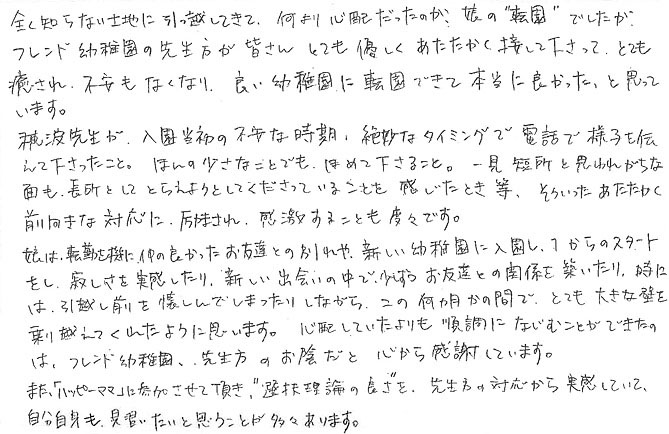 全く知らない土地に引っ越してきて、何より心配だったのが、娘の"転園"でしたが、
フレンド幼稚園の先生方が皆さん とても優しくあたたかく接して下さって、とても
癒され、不安もなくなり、良い幼稚園に転園できて本当に良かった、と思って
います。
穂波先生が、入園当初の不安な時期、絶妙なタイミングで電話で様子を伝
えて下さったこと。ほんの少さなことでも、ほめて下さること。一見短所と思われがちな
面も、長所としてとらえようとしてくださっていることを感じたとき等、そういったあたたかく
前向きな対応に、励まされ、感激することも度々です。
娘は、転勤を機に、仲の良かったお友達との別れや、新しい幼稚園に入園し、1からのスタート
をし、寂しさを実感したり、新しい出会いの中で、少しずつお友達との関係を築いたり、時に
は、引越し前を懐しんでしまったりしながら、この何ヶ月かの間で、とても大きな壁を
乗り越えてくれたように思います。心配していたよりも順調になじむことができたの
は、フレンド幼稚園、先生方のお陰だと心から感謝しています。
また、「ハッピーママ」に参加させて頂き、"選択理論の良さ"を、先生方の対応から実感していて、
自分自身も、見習いたいと思うことが多々あります。